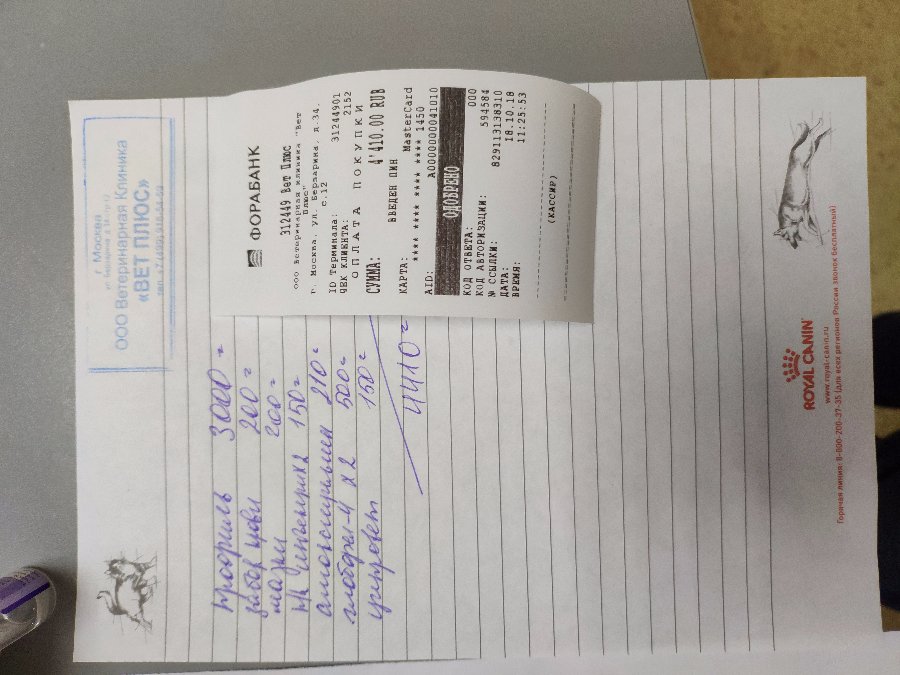 г. Москва
ООО Ветеринарная Клиника
«ВЕТ ПЛЮС»
ФОРАБАНК
312449 Вет Плюс
ООО Ветеринарная клиника "Вет
Плюс"
Г. Москва, ул. Берзарина, д.34,
с.12
ID Терминала: 31244901
ЧЕК КЛИЕНТА: 2152
ОПЛАТА ПОКУПКИ
СУММА: 4'410.00 RUB
ВВЕДЕН ПИН
КАРТА: MasterCard
**** **** **** **** 1450
AID: A0000000041010
ОДОБРЕНО
КОД ОТВЕТА: 000
КОД АВТОРИЗАЦИИ: 594584
№ ССЫЛКИ: 829113138310
ДАТА: 18.10.18
ВРЕМЯ: 11:25:53
(КАССИР)
профиль 3000=
забор крови 200=
мазки 200=
150=
210=
x 2 500=
150=
4410=
ROYAL CANIN
www.royal-canin.ru
Горячая линия: 8-800-200-37-35 (для всех регионов России звонок бесплатный)